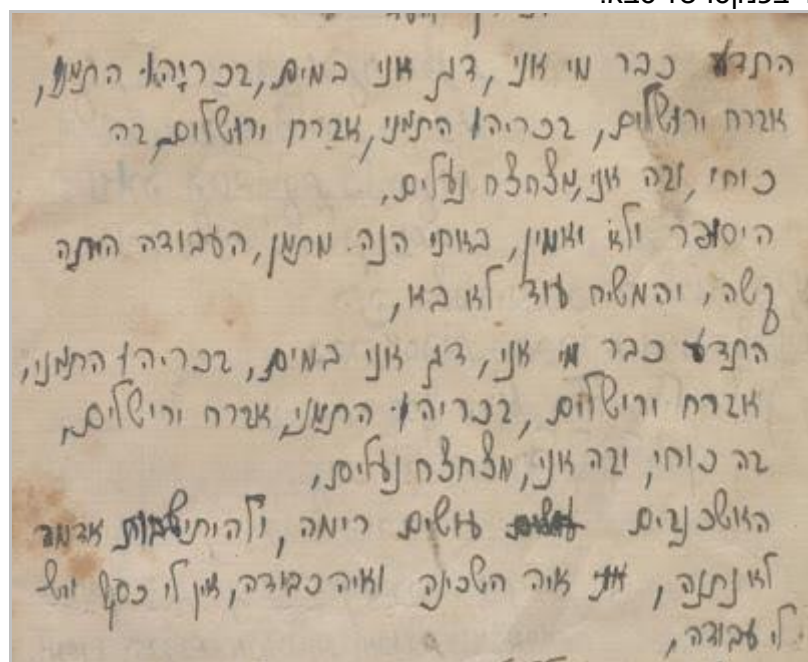 התדע כבר מי אני, דג אני במים, זכריהו התמני,
אזרח ירושלים, זכריהו התמני, אזרח ירושלים, זה
כוחי, וזה אני, מצחצח נעלים,
היסופר ולא יאמין, באתי הנה מתמן, העבודה היתה
קשה, והמשיח עוד לא בא,
התדע כבר מי אני, דג אני במים, זכריהו התמני,
אזרח ירושלים, זכריהו התמני, אזרח ירושלים,
זה כוחי, וזה אני, מצחצח נעלים,
האשכנזים עושים רימה, ולהיתישבות אדמה
לא נתנה, איה השכינה ואיה כבודה, אין לי כסף ויש
לי עבודה,